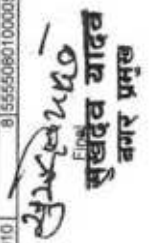 10 8 5555080100005
Final
सुखदेव यादव
नगर प्रमुख